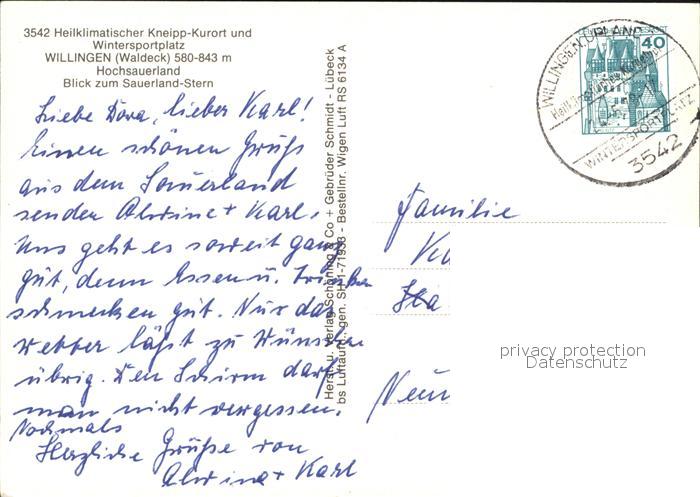 3542 Heilklimatischer Kneipp-Kurort und
Wintersportplatz
WILLINGEN (Waldeck) 580-843 m
Hochsauerland
Blick zum Sauerland-Stern
Liebe Dora, lieber Karl!
Einen schönen Gruß
aus dem Sauerland
senden Alwine + Karl.
Uns geht es soweit ganz
gut, denn Essen u. Trinken
schmecken gut. Nur das
Wetter läßt zu Wünschen
übrig. Den Schirm darf
man nicht vergessen.
Nochmals
Herzliche Grüße von
Alwine + Karl
Herst. u. Verlag Schöning & Co + Gebrüder Schmidt - Lübeck
bs Luftaufn. gen. SH 1-71933 - Bestellnr. Wigen Luft RS 6134 A
40
WILLINGEN, UPLAND
Heilklimatischer Kneippkurort
WINTERSPORTPLATZ
3542
Familie
Neun
privacy protection
Datenschutz